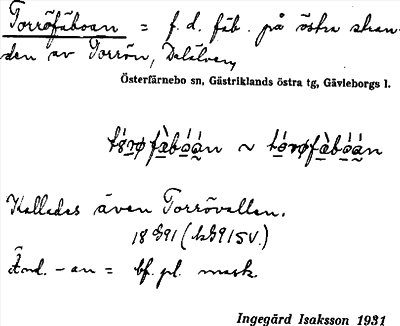 Torröfäboan = f. d. fäb. på östra stran-
den av Torrön, Dalälven,
Österfärnebo sn, Gästriklands östra tg, Gävleborgs l.
~
Kallades även Torrövallen.
18 G91
Änd. -an = bf. pl. mask.
Ingegärd Isaksson 1931